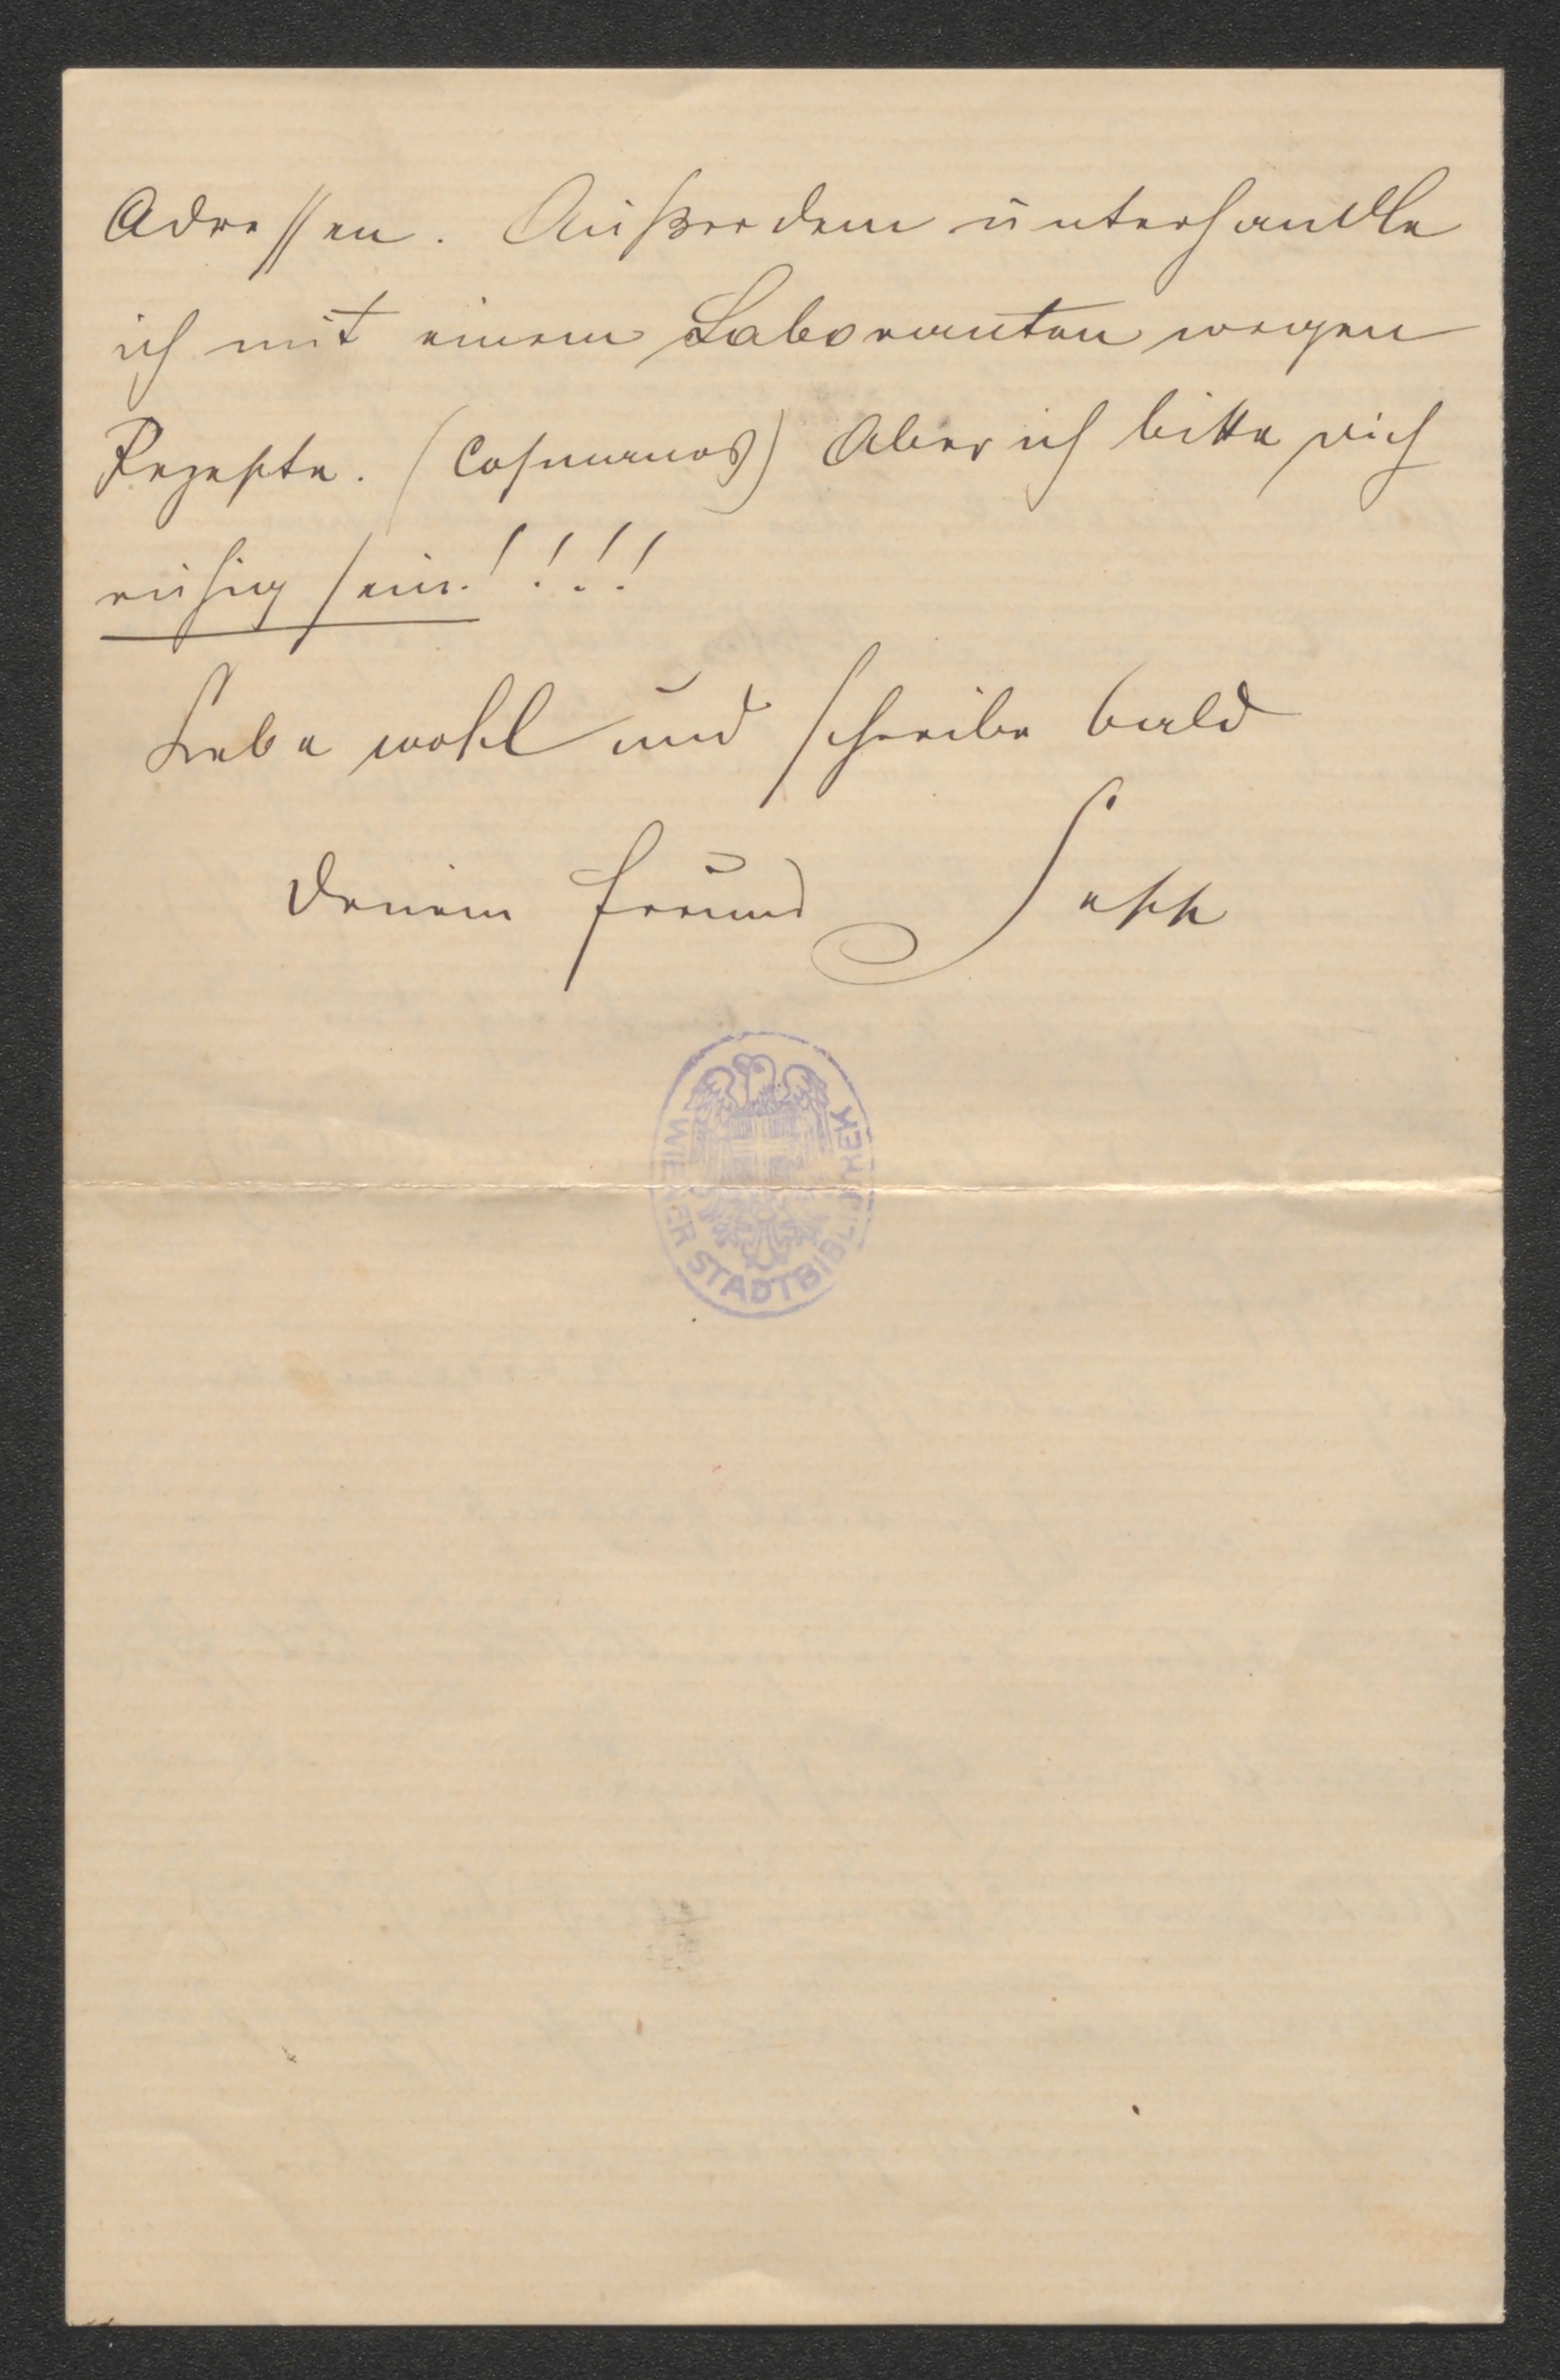 Adressen. Außerdem unterhandle
ich mit einem Laboranten wegen
Rezepte. (Cosmanos) Aber ich bitte dich
ruhig sein!!!!
Lebe wohl und schreibe bald
Deinem Freund Sepp
WIENER STADTBIBLIOTHEK